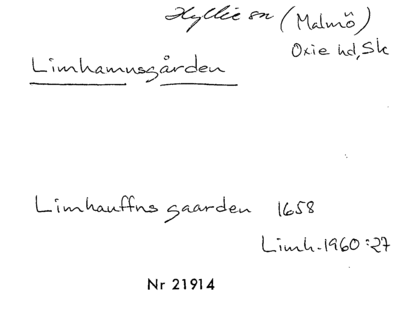 Hyllie sn (Malmö)
Oxie hd, Sk
Limhamnsgården
Limhauffns gaarden 1658
Limh. 1960:27
Nr 21914